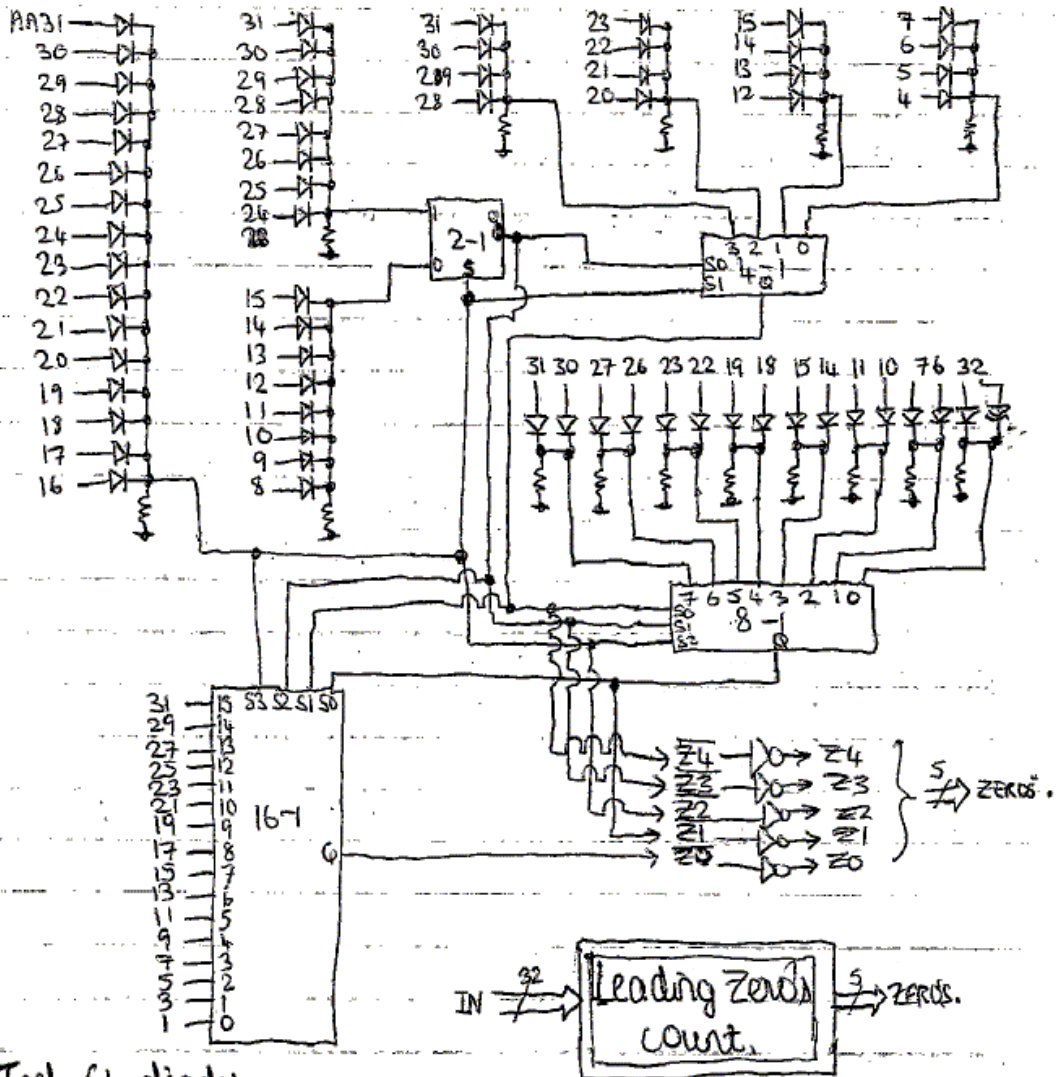 AA31
30
29
28
27
26
25
24
23
22
21
20
19
18
17
16
31
30
29
28
27
26
25
24
15
14
13
12
11
10
9
8
31
30
29
28
23
22
21
20
15
14
13
12
7
6
5
4
1 Q
2-1
0 S
3 2 1 0
S0 4-1
S1 Q
31 30 27 26 23 22 19 18 15 14 11 10 7 6 3 2
7 6 5 4 3 2 1 0
S0
S1 8-1
S2 Q
S3 S2 S1 S0
31 15
29 14
27 13
25 12
23 11
21 10
19 9
17 8
15 7
13 6
11 5
9 4
7 3
5 2
3 1
1 0
16-1
Q
Z4 Z4
Z3 Z3
Z2 Z2
Z1 Z1
Z0 Z0
5 ZEROS.
IN 32
Leading Zeros
count.
5 ZEROS.